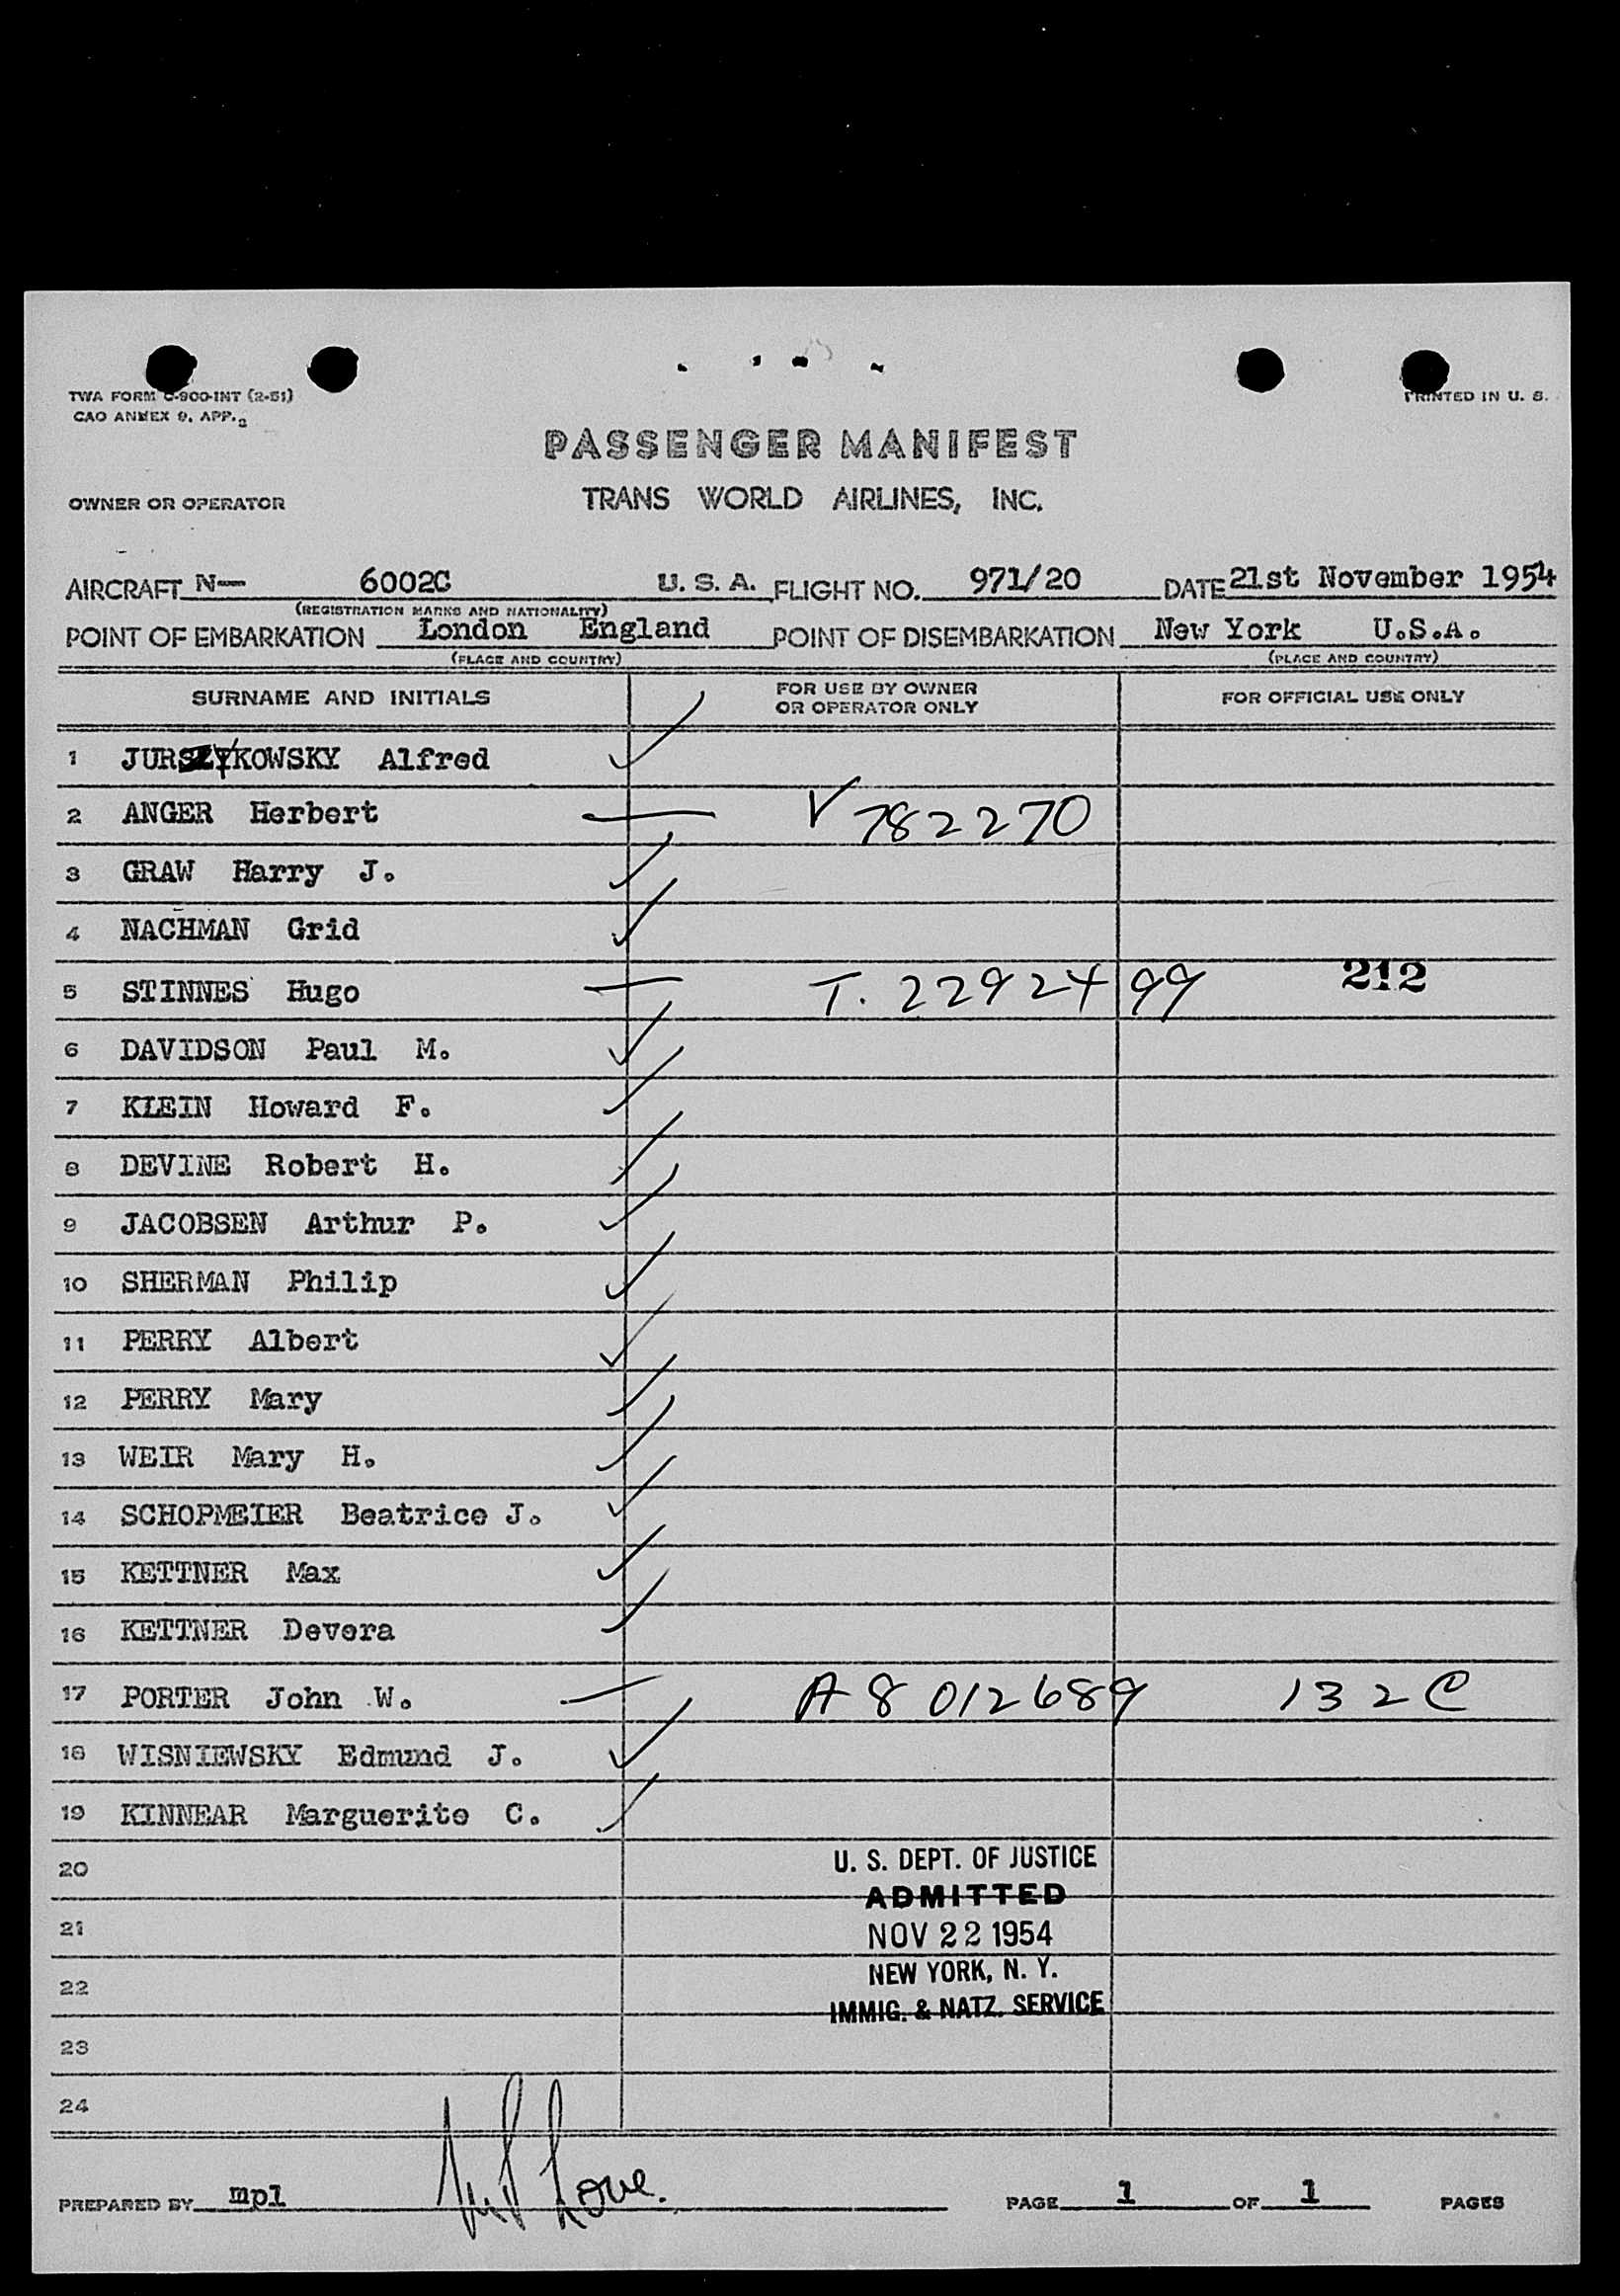 TWA FORM C-900-INT (2-51)
CAO ANNEX 9, APP. 2
PRINTED IN U. S.
PASSENGER MANIFEST
OWNER OR OPERATOR TRANS WORLD AIRLINES, INC.
AIRCRAFT N— 6002C U. S. A. FLIGHT NO. 971/20 DATE 21st November 1954
(REGISTRATION MARKS AND NATIONALITY)
POINT OF EMBARKATION London England POINT OF DISEMBARKATION New York U.S.A.
(PLACE AND COUNTRY) (PLACE AND COUNTRY)
SURNAME AND INITIALS FOR USE BY OWNER OR OPERATOR ONLY FOR OFFICIAL USE ONLY
1 JURSZYKOWSKY Alfred
2 ANGER Herbert V 782270
3 GRAW Harry J.
4 NACHMAN Grid
5 STINNES Hugo T. 2292499 212
6 DAVIDSON Paul M.
7 KLEIN Howard F.
8 DEVINE Robert H.
9 JACOBSEN Arthur P.
10 SHERMAN Philip
11 PERRY Albert
12 PERRY Mary
13 WEIR Mary H.
14 SCHOPMEIER Beatrice J.
15 KETTNER Max
16 KETTNER Devera
17 PORTER John W. A8 012689 132C
18 WISNIEWSKY Edmund J.
19 KINNEAR Marguerite C.
20
21
22
23
24
U. S. DEPT. OF JUSTICE
ADMITTED
NOV 22 1954
NEW YORK, N. Y.
IMMIG. & NATZ. SERVICE
PREPARED BY mpl Love. PAGE 1 OF 1 PAGES